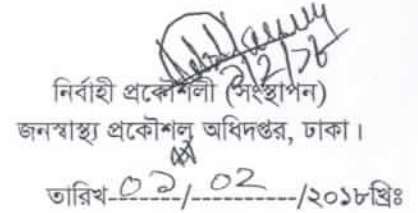 নির্বাহী প্রকৌশলী (সংস্থাপন)
জনস্বাস্থ্য প্রকৌশল অধিদপ্তর, ঢাকা।
তারিখ-০১/-০২/২০১৮খ্রিঃ